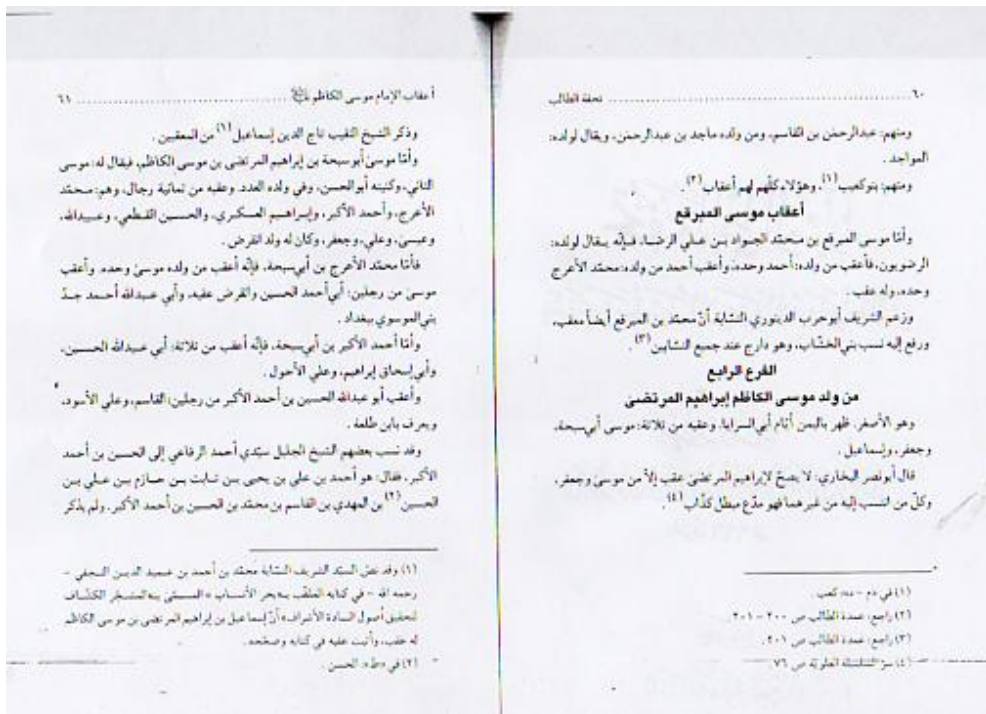 ٦٠ ........ تحفة الطالب
ومنهم: عبدالرحمٰن بن القاسم، ومن ولده ماجد بن عبدالرحمٰن، ويقال لولده:
المواجد .
ومنهم: بنو كعيب (١)، وهؤلاء كلّهم لهم أعقاب (٢) .
أعقاب موسى المبرقع
وأمّا موسى المبرقع بن محمّد الجواد بن علي الرضا، فإنّه يقال لولده:
الرضويون، فأعقب من ولده: أحمد وحده، وأعقب أحمد من ولده: محمّد الأعرج
وحده، وله عقب .
وزعم الشريف أبوحرب الدينوري النسّابة أنّ محمّد بن المبرقع أيضاً معقب،
ورفع إليه نسب بني الخشّاب، وهو دارج عند جميع النسّابين (٣) .
الفرع الرابع
من ولد موسى الكاظم إبراهيم المرتضى
وهو الأصغر، ظهر باليمن أيّام أبي السرايا، وعقبه من ثلاثة: موسى أبي سبحة،
وجعفر، وإسماعيل .
قال أبونصر البخاري: لا يصحّ لإبراهيم المرتضى عقب إلاّ من موسى وجعفر،
وكلّ من انتسب إليه من غيرهما فهو مدّع مبطل كذّاب (٤) .
(١) في «م - ه‍»: كعب .
(٢) راجع: عمدة الطالب ص ٢٠٠ - ٢٠١ .
(٣) راجع: عمدة الطالب ص ٢٠١ .
(٤) سرّ السلسلة العلويّة ص ٧٦ .
أعقاب الإمام موسى الكاظم ........ ٦١
وذكر الشيخ النقيب تاج الدين إسماعيل (١) من المعقبين .
وأمّا موسى أبو سبحة بن إبراهيم المرتضى بن موسى الكاظم، فيقال له: موسى
الثاني، وكنيته أبوالحسن، وفي ولده العدد. وعقبه من ثمانية رجال، وهم: محمّد
الأعرج، وأحمد الأكبر، وإبراهيم العسكري، والحسين القطعي، وعبيدالله،
وعيسى، وعلي، وجعفر، وكان له ولد انقرض .
فأمّا محمّد الأعرج بن أبي سبحة، فإنّه أعقب من ولده موسى وحده. وأعقب
موسى من رجلين: أبي أحمد الحسين وانقرض عقبه، وأبي عبدالله أحمد جدّ
بني الموسوي ببغداد .
وأمّا أحمد الأكبر بن أبي سبحة، فإنّه أعقب من ثلاثة: أبي عبدالله الحسين،
وأبي إسحاق إبراهيم، وعلي الأحول .
وأعقب أبو عبدالله الحسين بن أحمد الأكبر من رجلين: القاسم، وعلي الأسود،
ويعرف بابن طلعة .
وقد نسب بعضهم الشيخ الجليل سيّدي أحمد الرفاعي إلى الحسين بن أحمد
الأكبر، فقال: هو أحمد بن علي بن يحيى بن ثابت بن حازم بن علي بن
الحسين (٢) بن المهدي بن القاسم بن محمّد بن الحسين بن أحمد الأكبر. ولم يذكر
(١) وقد نصّ السيّد الشريف النسّابة محمّد بن أحمد بن عميد الدين النجفي -
رحمه الله - في كتابه الملقّب ببحر الأنساب «المسمّى بالمشجّر الكشّاف
لتحقيق أصول السادة الأشراف» أنّ إسماعيل بن إبراهيم المرتضى بن موسى الكاظم
له عقب، وأثبت عقبه في كتابه وصحّحه .
(٢) في «ط»: الحسن .